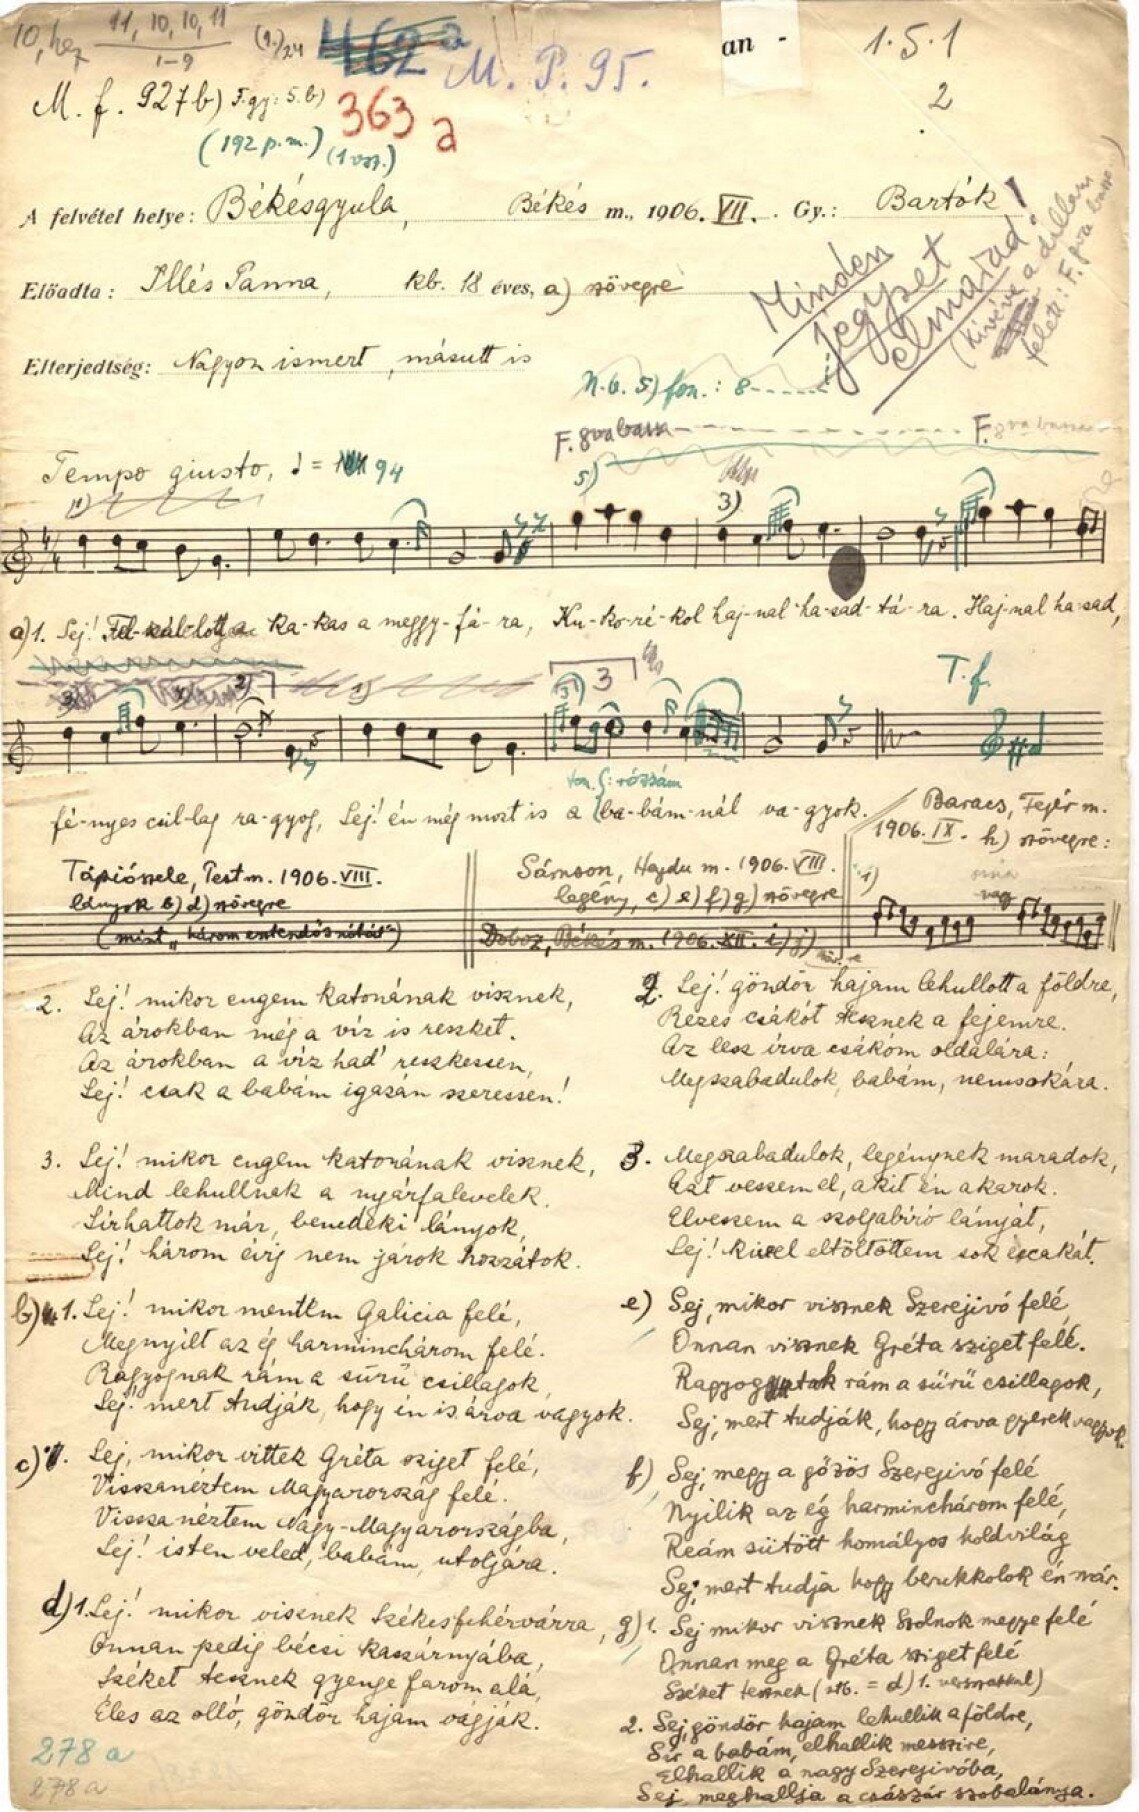 10, hez 11, 10, 10, 11
1-9
(1.) 24 462 a M. P. 95. an - 1.5.1
2
M. f. 927 b) F. gy: 5. b) 363 a
(192 p. m.) (1 vsz.)
A felvétel helye: Békésgyula, Békés m., 1906. VII. Gy.: Bartók
Előadta: Illés Panna, kb. 18 éves, a) szövegre
Elterjedtség: Nagyon ismert, másutt is
Minden jegyzet elmarad!
(kivéve a dallam felett: F. 8va bassa)
N. b. 5) fon.: 8------
F. 8va bassa F. 8va bassa
Tempo giusto, = 94
1) 5) 3)
a) 1. Sej! Fel-szál-lott a ka-kas a meggy-fá-ra, Ku-ko-ré-kol haj-nal-ha-sad-tá-ra. Haj-nal ha-sad,
T. f.
3 2) 1) 3) 3
fé-nyes csil-lag ra-gyog, Sej! én még most is a ba-bám-nál va-gyok.
fon. : rózsám
Baracs, Fejér m.
1906. IX. h) szövegre:
Tápiószele, Pest m. 1906. VIII.
lányok b) d) szövegre
(mint „három esztendős nótás")
Sámson, Hajdu m. 1906. VIII.
legény, c) e) f) g) szövegre
Doboz, Békés m. 1906. XII. i) j) szövegre
1) vagy
2. Sej! mikor engem katonának visznek,
Az árokban még a víz is reszket.
Az árokban a víz had' reszkessen,
Sej! csak a babám igazán szeressen!
3. Sej! mikor engem katonának visznek,
Mind lehullnak a nyárfalevelek.
Sírhattok már, benedeki lányok,
Sej! három évig nem járok hozzátok.
b) 1. Sej! mikor mentem Galicia felé,
Megnyílt az ég harminchárom felé.
Ragyognak rám a sűrű csillagok,
Sej! mert tudják, hogy én is árva vagyok.
c) 1. Sej, mikor vittek Gréta sziget felé,
Visszanéztem Magyarország felé.
Vissza néztem Nagy-Magyarországba,
Sej! isten veled, babám, utoljára.
d) 1. Sej! mikor visznek Székesfehérvárra,
Onnan pedig bécsi kaszárnyába,
Széket tesznek gyenge farom alá,
Éles az olló, göndör hajam vágják.
278 a
278 a
2. Sej! göndör hajam lehullott a földre,
Rezes csákót tesznek a fejemre.
Az lesz írva csákóm oldalára:
Megszabadulok, babám, nemsokára.
3. Megszabadulok, legénynek maradok,
Azt veszem el, akit én akarok.
Elveszem a szolgabíró lányát,
Sej! kivel eltöltöttem sok écakát.
e) Sej, mikor visznek Szerejivó felé,
Onnan visznek Gréta sziget felé.
Ragyogtak rám a sűrű csillagok,
Sej, mert tudják, hogy árva gyerek vagyok.
f) Sej, megy a gőzös Szerejivó felé
Nyilik az ég harminchárom felé,
Reám sütött homályos holdvilág
Sej, mert tudja hogy berukkolok én már.
g) 1. Sej mikor visznek Szolnok megye felé
Onnan meg a Gréta sziget felé
Széket tesznek (stb. = d) 1. versszakkal)
2. Sej, göndör hajam lehullik a földre,
Sír a babám, elhallik messzire,
Elhallik a nagy Szerejivóba,
Sej, meghallja a császár szobalánya.